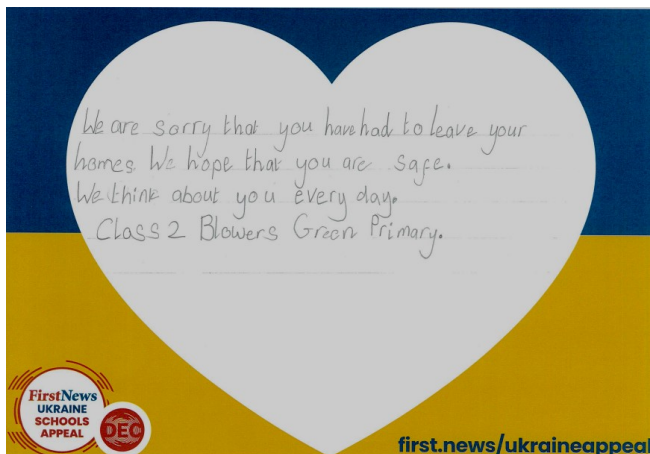 We are sorry that you have had to leave your
homes. We hope that you are safe.
We think about you every day.
Class 2 Blowers Green Primary.
FirstNews
UKRAINE
SCHOOLS
APPEAL
DEC
first.news/ukraineappeal